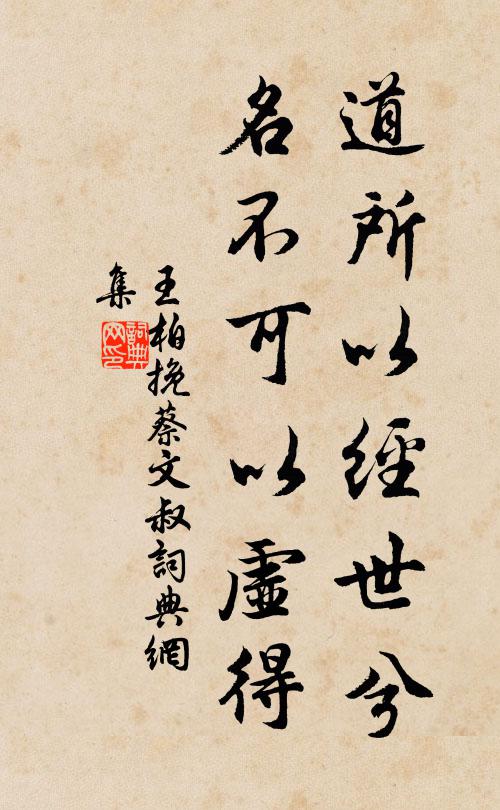 道所以經世兮
名不可以虛得
王柏挽蔡文叔詞典網
集
詞典
网印